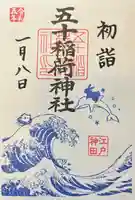 初詣
五十稲荷神社
一月八日
江戸
神田